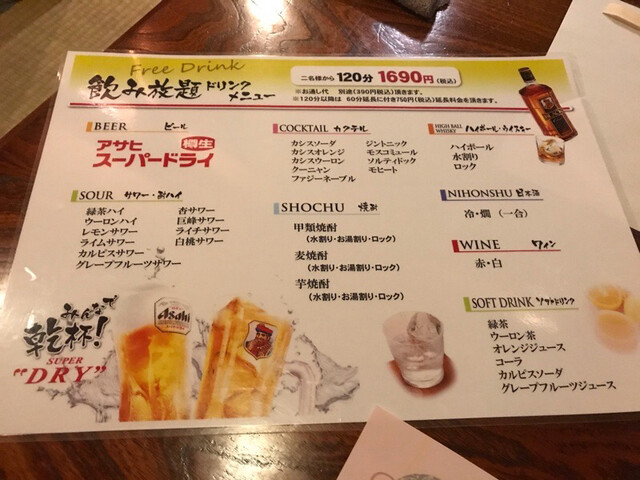 Free Drink
飲み放題 ドリンク
メニュー
二名様から 120分 1690円(税込)
※お通し代 別途(390円税込)頂きます。
※120分以降は 60分延長に付き750円(税込)延長料金を頂きます。
BEER ビール
アサヒ 樽生
スーパードライ
SOUR サワー・酎ハイ
緑茶ハイ 杏サワー
ウーロンハイ 巨峰サワー
レモンサワー ライチサワー
ライムサワー 白桃サワー
カルピスサワー
グレープフルーツサワー
みんなで
乾杯!
SUPER
"DRY"
Asahi
COCKTAIL カクテル
カシスソーダ ジントニック
カシスオレンジ モスコミュール
カシスウーロン ソルティドック
クーニャン モヒート
ファジーネーブル
SHOCHU 焼酎
甲類焼酎
(水割り・お湯割り・ロック)
麦焼酎
(水割り・お湯割り・ロック)
芋焼酎
(水割り・お湯割り・ロック)
HIGH BALL
WHISKY ハイボール・ウイスキー
ハイボール
水割り
ロック
NIHONSHU 日本酒
冷・燗 (一合)
WINE ワイン
赤・白
SOFT DRINK ソフトドリンク
緑茶
ウーロン茶
オレンジジュース
コーラ
カルピスソーダ
グレープフルーツジュース